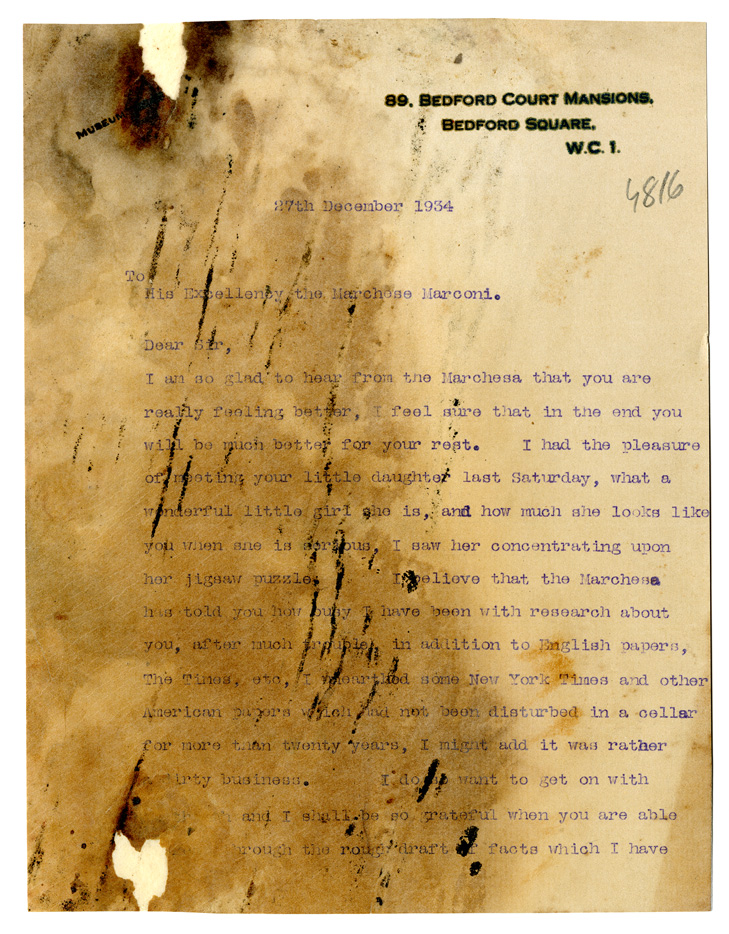 89, BEDFORD COURT MANSIONS,
BEDFORD SQUARE,
W.C. 1.
MUSEUM
4816
27th December 1934
To
His Excellency the Marchese Marconi.
Dear Sir,
I am so glad to hear from the Marchesa that you are
really feeling better, I feel sure that in the end you
will be much better for your rest. I had the pleasure
of meeting your little daughter last Saturday, what a
wonderful little girl she is, and how much she looks like
you when she is serious, I saw her concentrating upon
her jigsaw puzzle. I believe that the Marchesa
has told you how busy I have been with research about
you, after much trouble, in addition to English papers,
The Times, etc, I unearthed some New York Times and other
American papers which had not been disturbed in a cellar
for more than twenty years, I might add it was rather
dirty business. I do want to get on with
and I shall be so grateful when you are able
through the rough draft of facts which I have